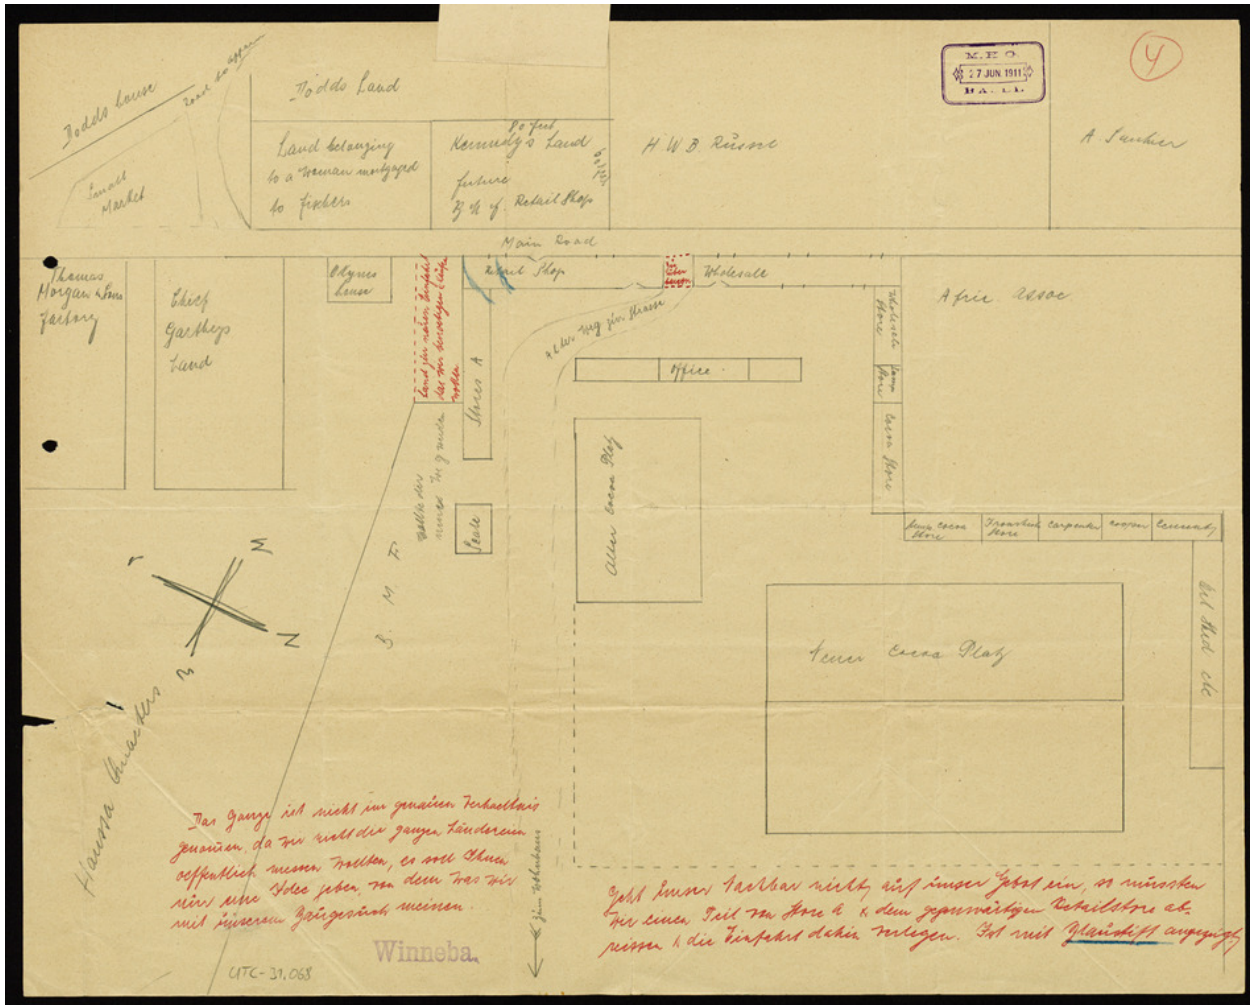 M.H.O.
27 JUN 1911
BASEL
4
Dodds house
Road to appam
Small
Market
Dodds Land
Land belonging
to a woman mortgaged
to fishers
80 feet
Kennedy's Land
future
Retail Shop
H. W. B. Russel
A.
Main Road
Thomas
Morgan & Sons
factory
Chief
Garthys
Land
house
Land zur neuen Einfahrt
das wir benötigen
wollen
Retail Shop
Wholesale
Afric. Assoc.
Stores A
Weg zur Strasse
Office.
Wholesale
Store
Store
Cocoa Store
Alter Cocoa Platz
Scale
B. M. F.
Cocoa
Store
Store
Carpenter
Cooper
Oil Shed etc
Neuer Cocoa Platz
N
Haussa Quarters
Das Ganze ist nicht im genauen Verhaeltnis
genommen, da wir nicht die ganzen Ländereien
oeffentlich messen wollten, es soll Ihnen
nur eine Idee geben, von dem was wir
mit unserem Baugesuch meinen.
zum Wohnhaus
Geht unser Nachbar nicht auf unser Gebot ein, so müssten
wir einen Teil von Store A & dem gegenwärtigen Retailstore ab-
reissen & die Einfahrt dahin verlegen. Ist mit Blaustift angezeigt
Winneba.
UTC-31.068